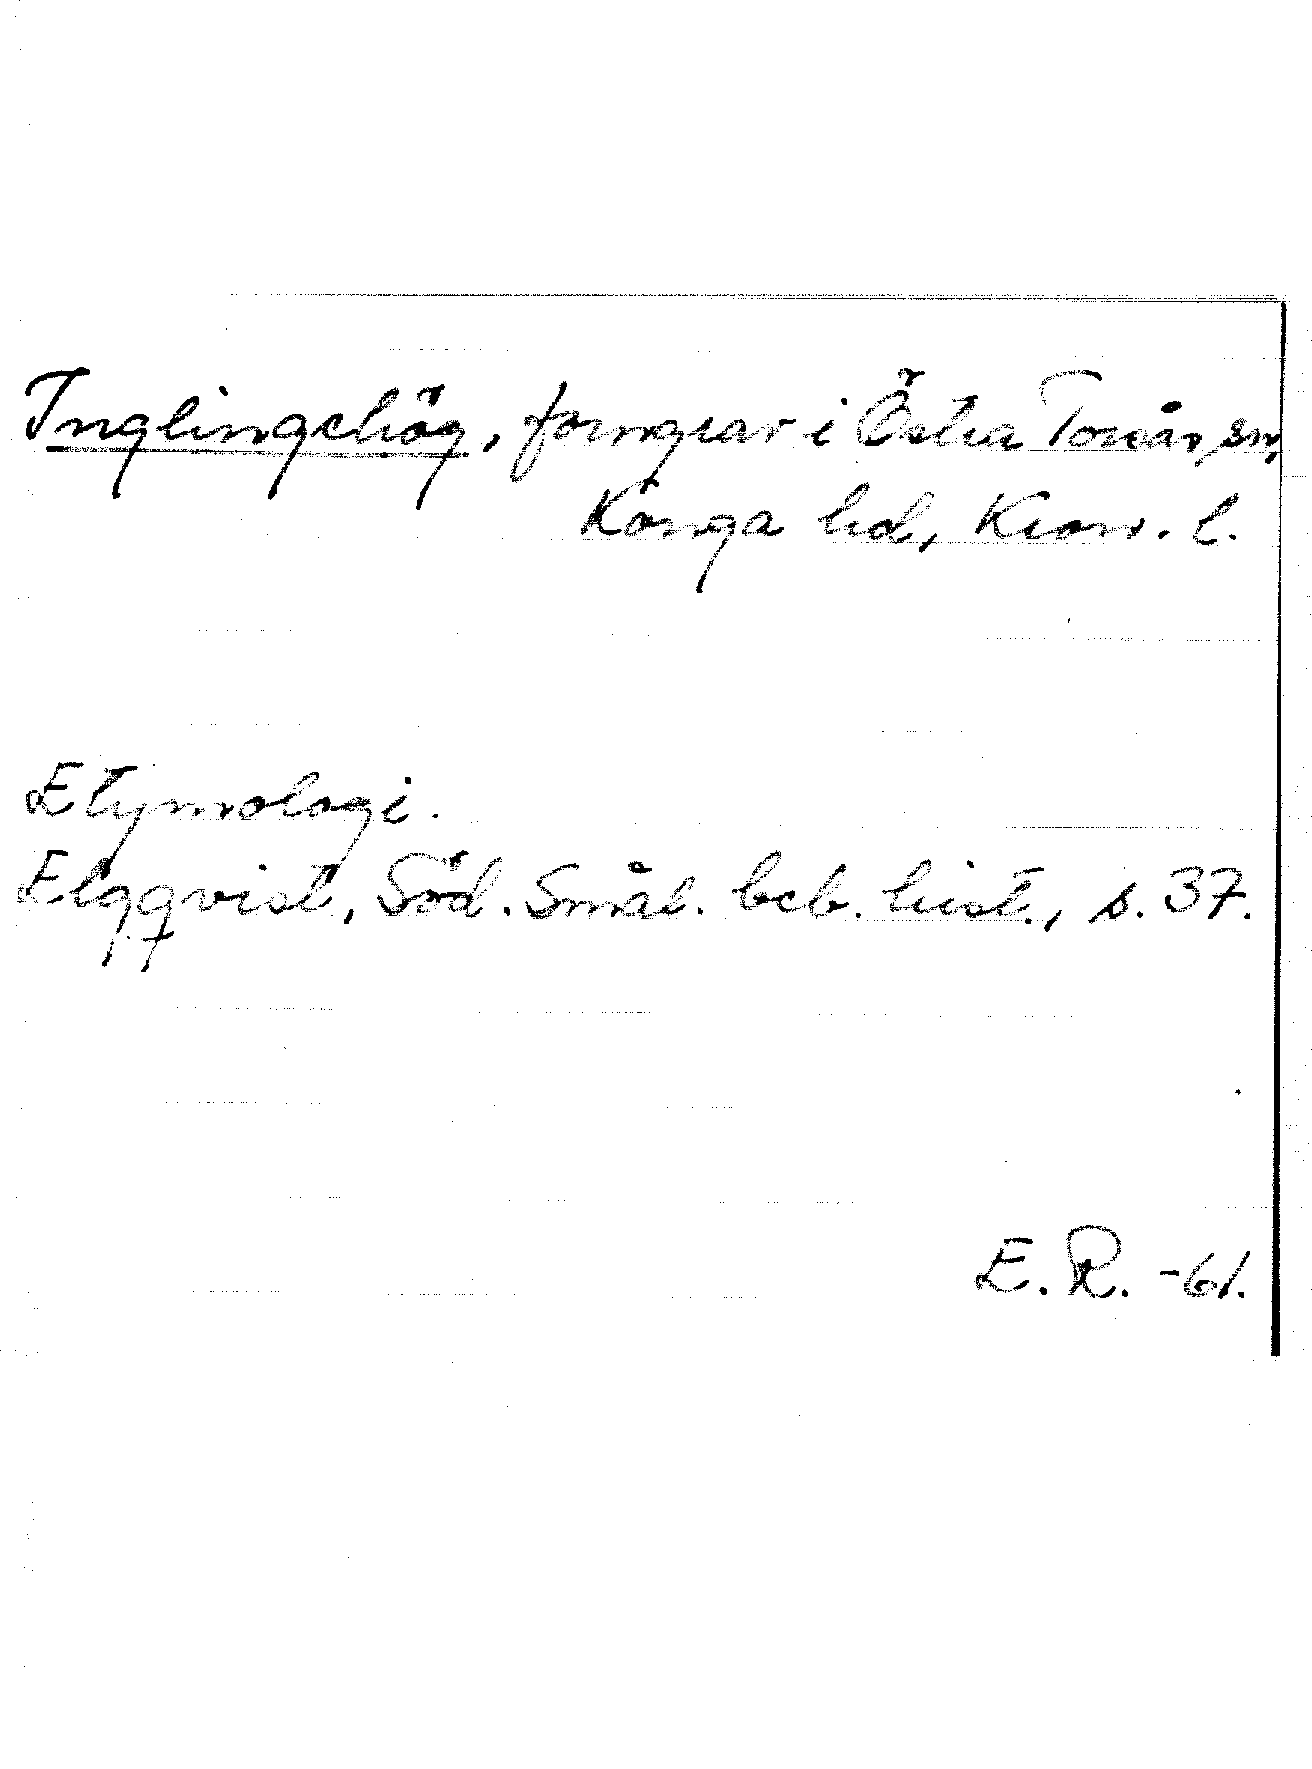 Inglingehög, forngrav i Östra Torsås sn,
Konga hd, Kron. l.
Etymologi.
Elgqvist, Söd. Smål. beb. hist., s. 37.
E. R. -61.